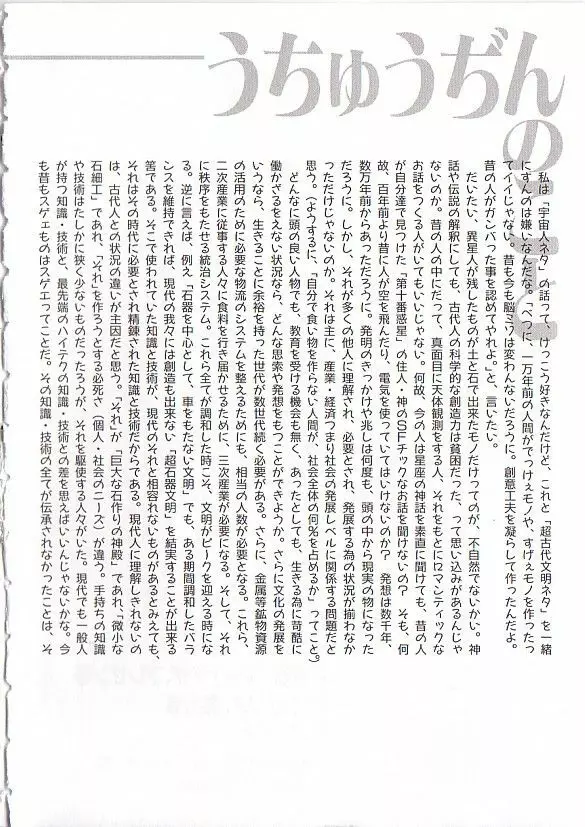 うちゅうぢんの
私は「宇宙人ネタ」の話って、けっこう好きなんだけど、これと「超古代文明ネタ」を一緒
にすんのは嫌いなんだな。「べつに、一万年前の人間がでっけぇモノや、すげぇモノを作ったっ
てイイじゃない。昔も今も脳ミソは変わんないだろうに。創意工夫を凝らして作ったんだよ。
昔の人がガンバった事を認めてやれよ。」と、言いたい。
だいたい、異星人が残したものが土と石で出来たモノだけってのが、不自然でないかい。神
話や伝説の解釈にしても、古代人の科学的な創造力は貧困だった、って思い込みがあるんじゃ
ないのか。昔の人の中にだって、真面目に天体観測をする人、それをもとにロマンティックな
お話をつくる人がいてもいいじゃない。何故、今の人は星座の神話を素直に聞けても、昔の人
が自分達で見つけた「第十番惑星」の住人・神のSFチックなお話を聞けないの？そも、何
故、百年前より昔に人が空を飛んだり、電気を使っていてはいけないのか？発想は数千年、
数万年前からあっただろうに。発明のきっかけや兆しは何度も、頭の中から現実の物になった
だろうに。しかし、それが多くの他人に理解され、必要とされ、発展する為の状況が揃わなか
っただけじゃないのか。それは主に、産業・経済つまり社会の発展レベルに関係する問題だと
思う。(ようするに、「自分で食い物を作らない人間が、社会全体の何％を占めるか」ってこと。)
どんなに頭の良い人物でも、教育を受ける機会も無く、あったとしても、生きる為に苛酷に
働かざるをえない状況なら、どんな思索や発想をもつことができようか。さらに文化の発展を
いうなら、生きることに余裕を持った世代が数世代続く必要がある。さらに、金属等鉱物資源
の活用のために必要な物流のシステムを整えるためにも、相当の人数が必要となる。これら、
二次産業に従事する人々に食料を行き届かせるために、三次産業が必要になる。そして、それ
に秩序をもたせる統治システム。これら全てが調和した時こそ、文明がピークを迎える時にな
る。逆に言えば、例え「石器を中心として、車をもたない文明」でも、ある期間調和したバラ
ンスを維持できれば、現代の我々には創造も出来ない「超石器文明」を結実することが出来る
筈である。そこで使われていた知識と技術が、現代のそれと相容れないものがあるとみえても、
それはその時代に必要とされ精錬された知識と技術だからである。現代人に理解しきれないの
は、古代人との状況の違いが主因だと思う。「それ」が「巨大な石作りの神殿」であれ、「微小な
石細工」であれ、「それ」を作ろうとする必死さ（個人・社会のニーズ）が違う。手持ちの知識
や技術はたしかに狭く少ないものだったろうが、それを駆使する人々がいた。現代でも一般人
が持つ知識・技術と、最先端のハイテクの知識・技術との差を思えばいいんじゃないかな。今
も昔もスゲェものはスゲエってことだ。その知識・技術の全てが伝承されなかったことは、そ